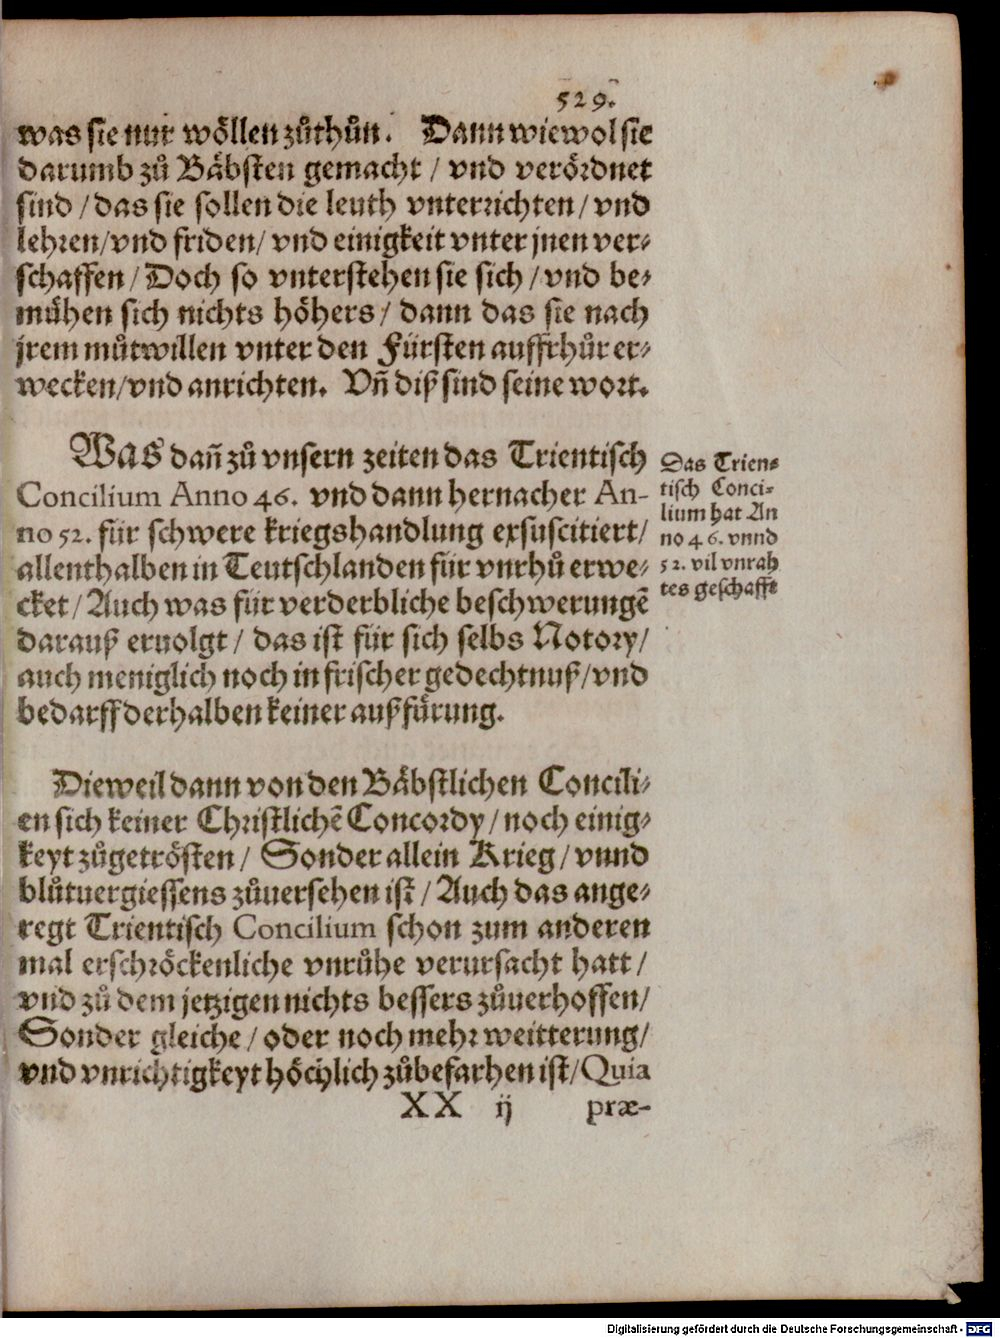 529.
was sie nur wöllen zůthůn. Dann wiewol sie
darumb zů Bäbsten gemacht / vnd verördnet
sind / das sie sollen die leuth vnterrichten / vnd
lehren / vnd friden / vnd einigkeit vnter jnen ver⸗
schaffen / Doch so vnterstehen sie sich / vnd be⸗
mühen sich nichts höhers / dann das sie nach
jrem můtwillen vnter den Fürsten auffrhůr er⸗
wecken / vnd anrichten. Vñ diß sind seine wort.
WAS dañ zů vnsern zeiten das Trientisch
Concilium Anno 46. vnd dann hernacher An-
no 52. für schwere kriegshandlung exsuscitiert /
allenthalben in Teutschlanden für vnrhů erwe⸗
cket / Auch was für verderbliche beschwerungẽ
darauß eruolgt / das ist für sich selbs Notory /
auch meniglich noch in frischer gedechtnuß / vnd
bedarff derhalben keiner außfürung.
Das Trien⸗
tisch Conci⸗
lium hat An
no 46. vnnd
52. vil vnrah
tes geschafft
Dieweil dann von den Bäbstlichen Concili⸗
en sich keiner Christlichẽ Concordy / noch einig⸗
keyt zůgetrösten / Sonder allein Krieg / vnnd
blůtuergiessens zůuersehen ist / Auch das ange⸗
regt Trientisch Concilium schon zum anderen
mal erschröckenliche vnrůhe verursacht hatt /
vnd zů dem jetzigen nichts bessers zůuerhoffen /
Sonder gleiche / oder noch mehr weitterung /
vnd vnrichtigkeyt höchlich zůbefarhen ist / Quia
XX ij præ-
Digitalisierung gefördert durch die Deutsche Forschungsgemeinschaft - DFG